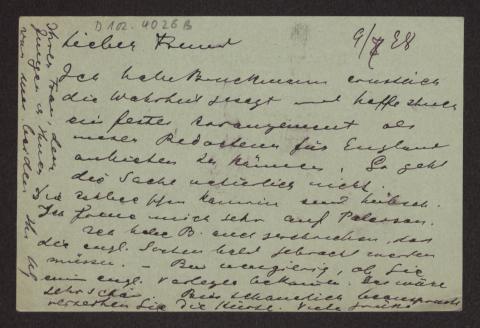 D 102. 4026 B
Lieber Freund 9/7 28
Ich habe Bruckmann ernstlich
die Wahrheit gesagt und hoffe Ihnen
ein festes Arrangement als
unser Redakteur für England
anbieten zu können. So geht
die Sache natürlich nicht.
Die sind hübsch.
Ich freue mich sehr auf Peterson.
Ich habe B. auch geschrieben, dass
die engl. Sachen bald gebracht werden
müssen. – Bin neugierig, ob Sie
einen engl. Verleger bekommen. Das wäre
sehr schön. Bin schauerlich beansprucht
verzeihen Sie die Kürze. Viele Grüsse
Ihrer Frau, dem
Jungen u. Ihnen
von uns beiden Ihr